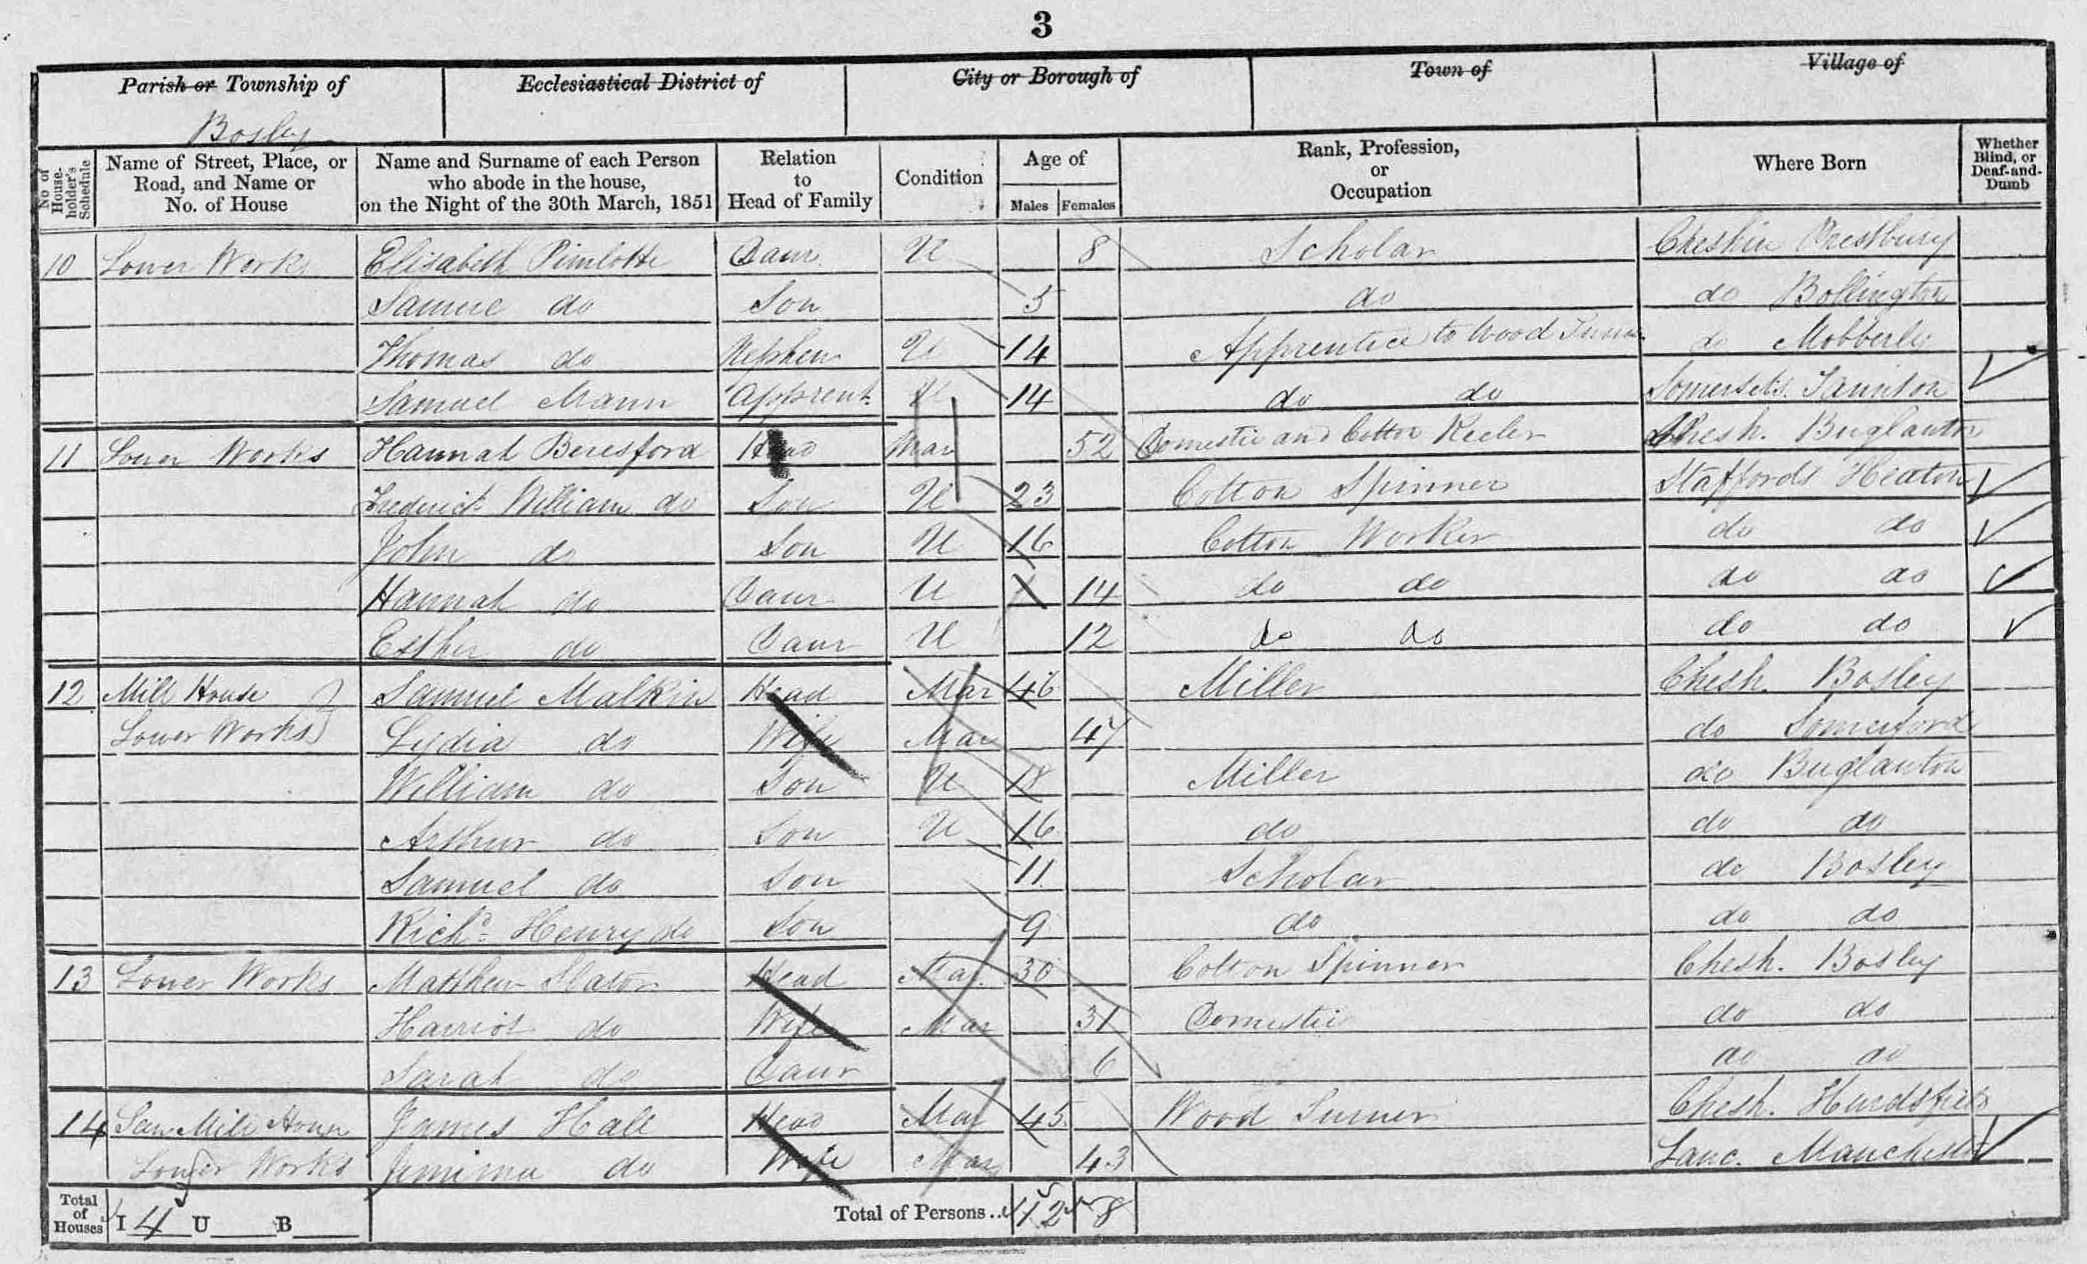 3
Parish or Township of Ecclesiastical District of City or Borough of Town of Village of
Bosley
No. of House-holder's Schedule Name of Street, Place, or Road, and Name or No. of House Name and Surname of each Person who abode in the house, on the Night of the 30th March, 1851 Relation to Head of Family Condition Age of Males Females Rank, Profession, or Occupation Where Born Whether Blind, or Deaf-and-Dumb
10 Lower Works Elisabeth Pimlotte Daur U 8 Scholar Cheshire Prestbury
Samuel do Son 5 do do Bollington
Thomas do Nephew U 14 Apprentice to Wood Turner do Mobberley
Samuel Mann Apprent. U 14 do do Somersets. Taunton
11 Lower Works Hannah Beresford Head Mar 52 Domestic and Cotton Reeler Chesh. Buglawton
Frederick William do Son U 23 Cotton Spinner Staffords Heaton
John do Son U 16 Cotton Worker do do
Hannah do Daur U 14 do do do do
Esther do Daur U 12 do do do do
12 Mill House Samuel Malkin Head Mar 46 Miller Chesh. Bosley
Lower Works Lydia do Wife Mar 47 do Somerford
William do Son U 18 Miller do Buglawton
Arthur do Son U 16 do do do
Samuel do Son 11 Scholar do Bosley
Richd. Henry do Son 9 do do do
13 Lower Works Matthew Slator Head Mar. 30 Cotton Spinner Chesh. Bosley
Harriot do Wife Mar 31 Domestic do do
Sarah do Daur 6 do do
14 Saw Mill House James Hall Head Mar 45 Wood Turner Chesh. Hurdsfield
Lower Works Jemima do Wife Mar 43 Lanc. Manchester
Total of Houses I 4 U B Total of Persons 12 8